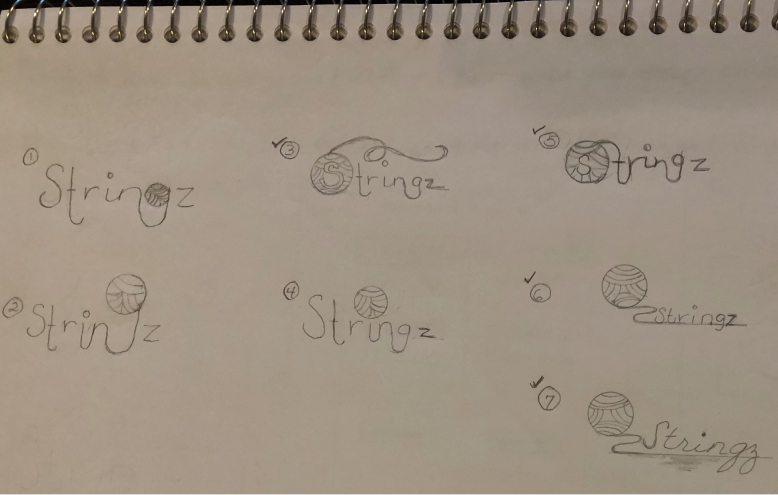 ① Stringz
② Stringz
✓③ Stringz
④ Stringz
✓⑤ Stringz
✓⑥ Stringz
✓⑦ Stringz